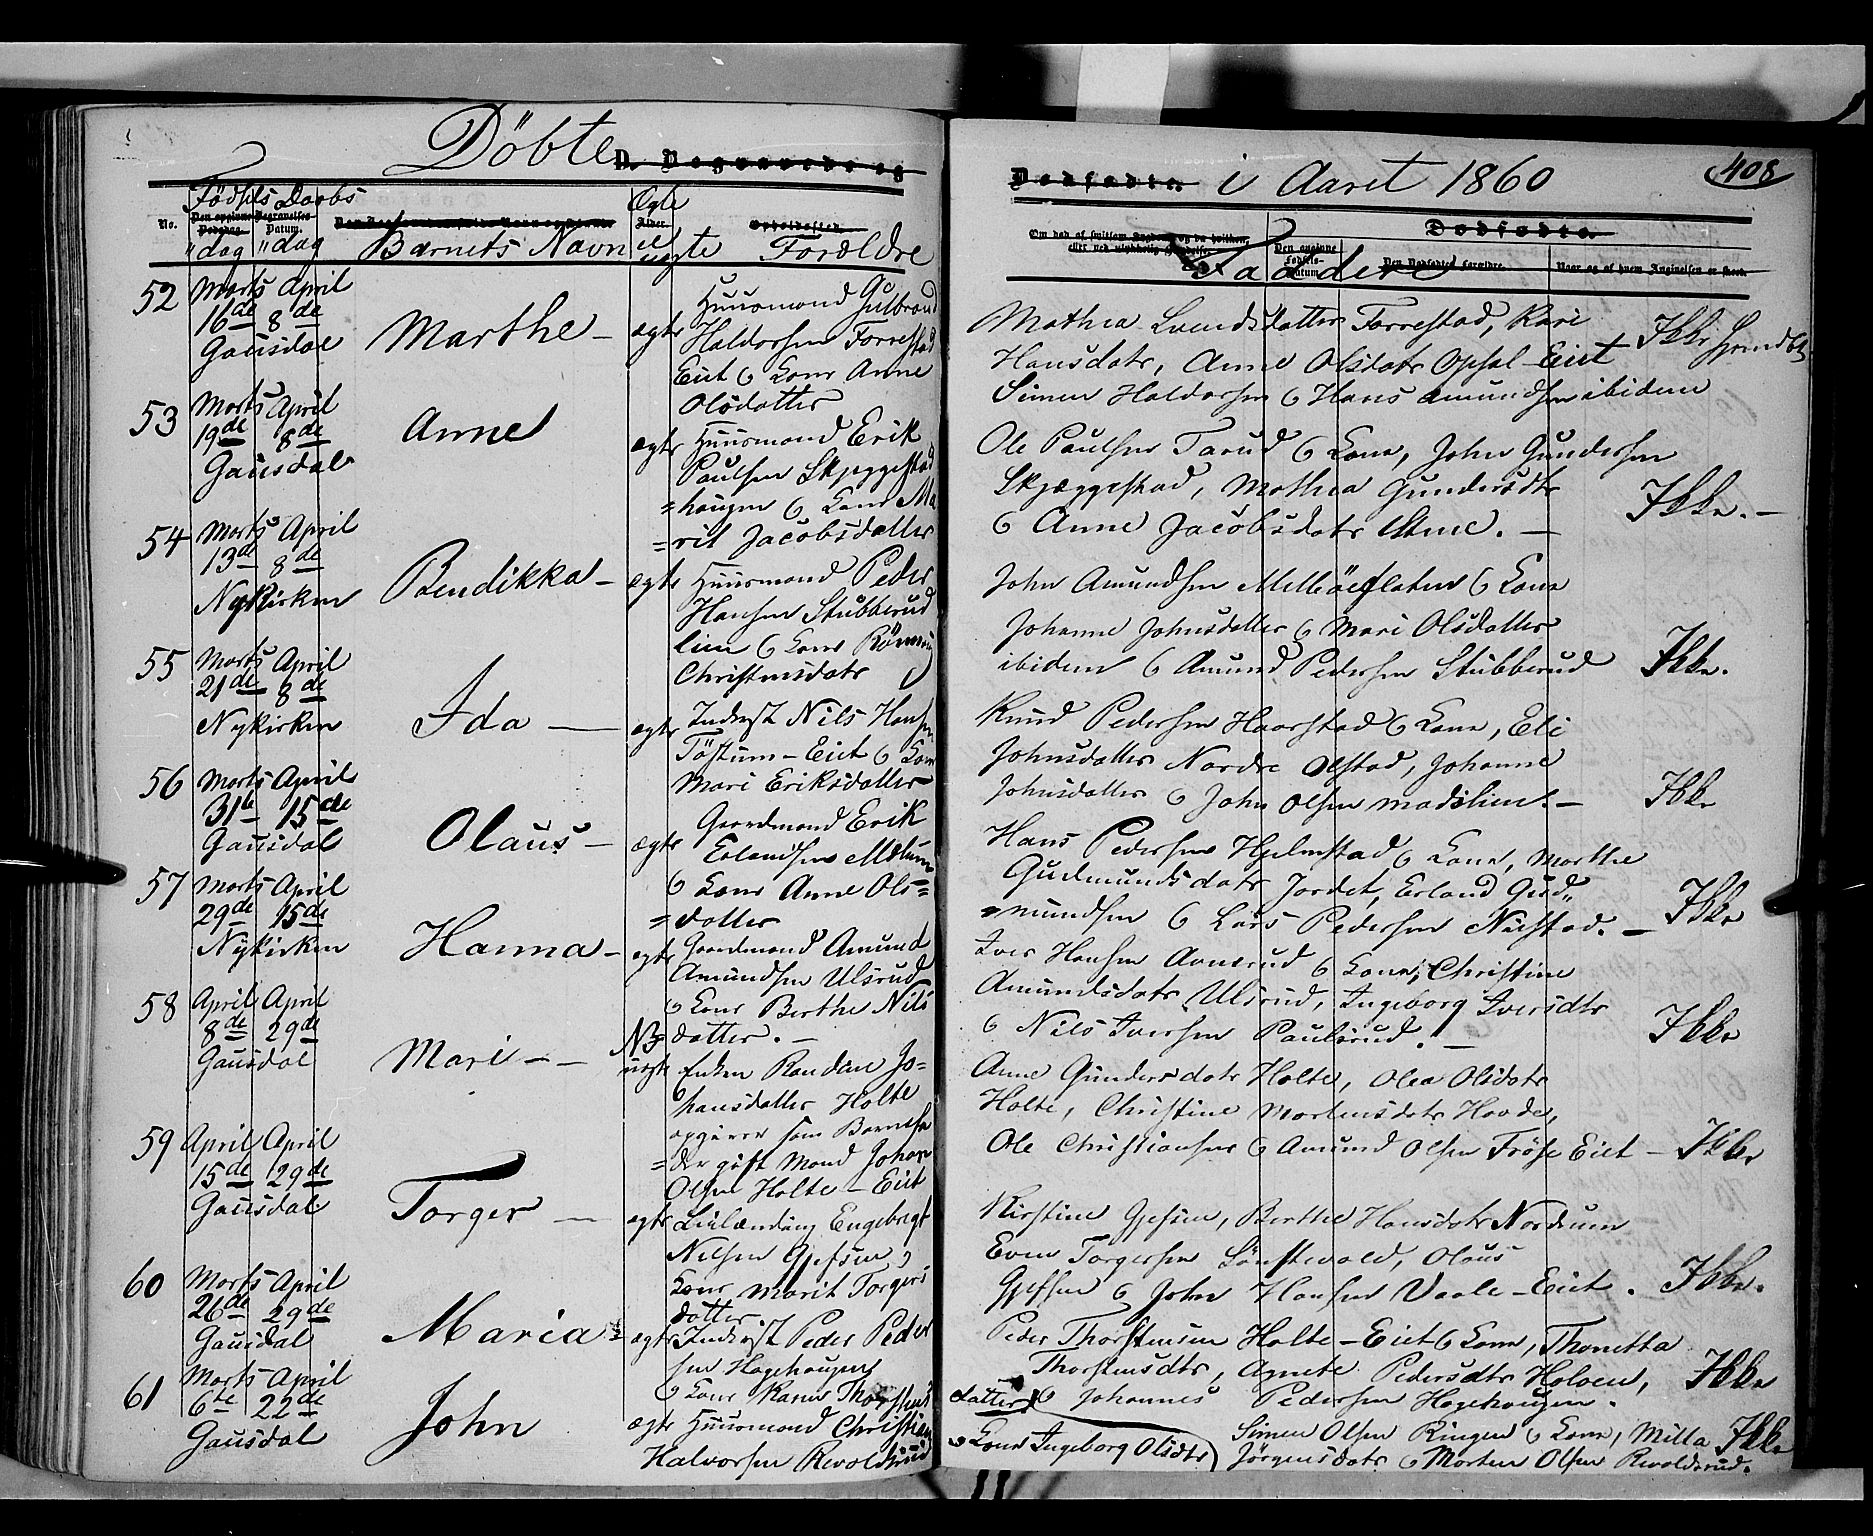 Döbte D. Begravede og
Dødfødte. i Aaret 1860 408
Fødsels Daabs Ægte
No. Den opgivne Dødsdag. Begravelses-Datum. Alder. Opholdssted. Dødfødte.
"dag "dag Barnets Navn el uægte Forældre
Faddere
52 Marts 16de April 8de Gausdal
Marthe - ægte
Huusmand Gulbrand
Haldorsen Forrestad
Eiet & Kone Anne
Olsdatter
Mathea Svendsdatter Forrestad, Kari
Hansdatr, Anne Olsdatr Opsal Eiet Ikke
Simen Haldorsen & Hans Amundsen ibidem
53 Marts 19de April 8de Gausdal
Anne ægte
Huusmand Erik
Paulsen Skjeggestad
=haugen & Kone Ma
=rit Jacobsdatter
Ole Paulsen Tarud & Kone, John Gundersen
Skjæggestad, Mathea Gundersdtr
& Anne Jacobsdatr . - Ikke. -
54 Marts 13de April 8de Nykirken
Bendikka - ægte
Huusmand Peder
Hansen Stubberud
lien & Kone
Christensdatr
John Amundsen & Kone
Johanne Johnsdatter & Mari Olsdatter
ibidem & Amund Pedersen Stubberud Ikke.
55 Marts 21de April 8de Nykirken
Ida - ægte
Inderst Nils Hansen
Töstum - Eiet & Kone
Mari Eriksdatter
Knud Pedersen Haarstad & Kone, Eli
Johnsdatter Nordre Olstad, Johanne
Johnsdatter & John Olsen . - Ikke
56 Marts 31te April 15de Gausdal
Olaus - ægte
Gaardmand Erik
Erlandsen
& Kone Anne Ols=
=datter
Hans Pedersen Hjelmstad & Kone, Marthe
Gudmundsdatr Jordet, Erland Gud=
=mundsen & Lars Pedersen . - Ikke
57 Marts 29de April 15de Nykirken
Hanna - ægte
Gaardmand Amund
Amundsen Ulsrud
& Kone Berthe Nils
datter. -
Iver Hansen & Kone, Christine
Amundsdatr Ulsrud, Ingeborg Iversdtr
& Nils Iversen Paulsrud. - Ikke
58 April 8de April 29de Gausdal
Mari - - NB uægte
Enken Randine Jo=
hansdatter Holte
opgiver som Barnefa
=der gift Mand Johan
Olsen Holte - Eiet
Anne Gundersdatr Holte, Olea Olsdatr
Holte, Christine Mortensdatr Hovde,
Ole Christiansen & Amund Olsen Eiet - Ikke
59 April 15de April 29de Gausdal
Torger - ægte
Engebregt
Nilsen
Kone Marit Torgers
datter
Kirstine , Berthe Hansdatr Nordrum
Even Torgersen , Olaus
& John Hansen Vaale - Eiet. Ikke.
60 Marts 26de April 29de Gausdal
Maria ægte
Inderst Peder Peder
sen Hagehaugen
& Kone Karen Thorstens
Peder Thorstensen Holte - Eiet & Kone, Thonetta
Thorstensdtr, Agnete Pedersdtr Holoen, Ikke
datter & Johannes Pedersen Hagehaugen.
61 Marts 6te April 22de Gausdal
John ægte
Huusmand Christian
Halvorsen Revoldsrud
& Kone Ingeborg Olsdtr
Simen Olsen Ringen & Kone, Milla Ikke
Jörgensdatr & Morten Olsen Revoldsrud.